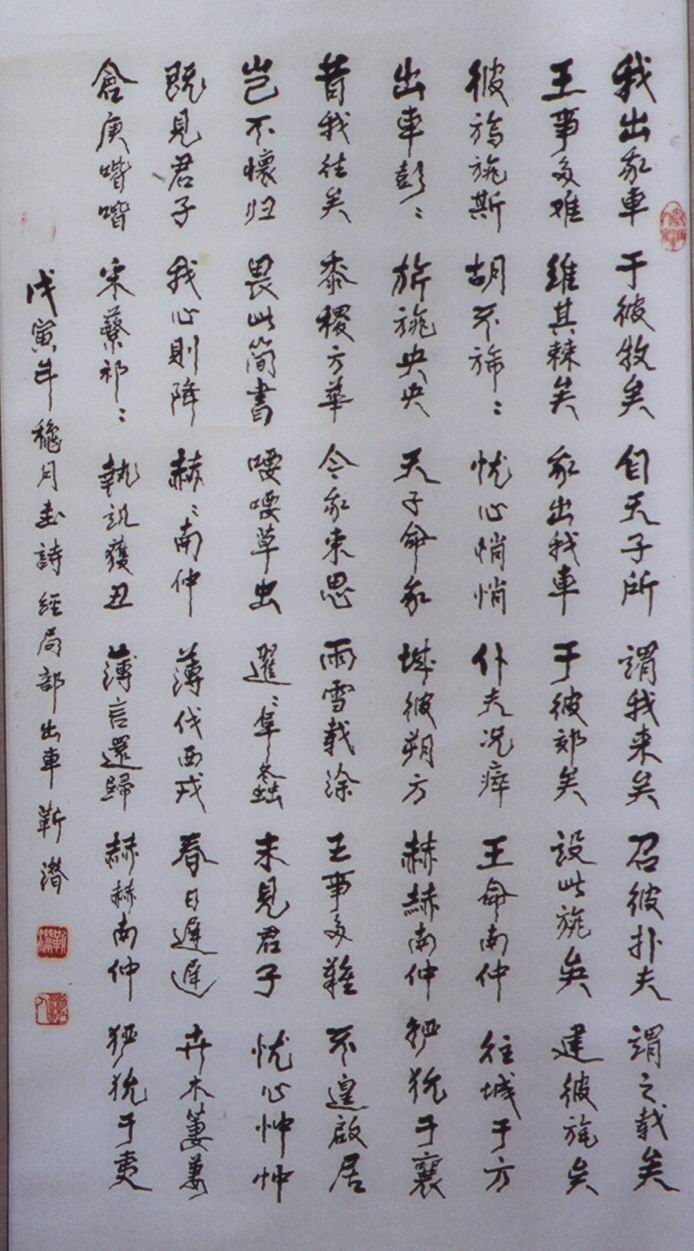 我出我車 于彼牧矣 自天子所 謂我来矣 召彼扑夫 謂之载矣
王事多难 维其棘矣 我出我車 于彼郊矣 设此旐矣 建彼旄矣
彼旟旐斯 胡不旆〻 忧心悄悄 仆夫况瘁 王命南仲 往城于方
出車彭〻 旂旐央央 天子命我 城彼朔方 赫赫南仲 玁狁于襄
昔我往矣 黍稷方华 今我来思 雨雪载涂 王事多難 不遑啟居
岂不懷归 畏此简書 喓喓草虫 趯〻阜螽 未見君子 忧心忡忡
既見君子 我心則降 赫〻南仲 薄伐西戎 春日遲遲 卉木萋萋
倉庚喈喈 采蘩祁〻 執訊獲丑 薄言還歸 赫赫南仲 玁狁于夷
戊寅年 穐月 書詩經局部出車 靳潜